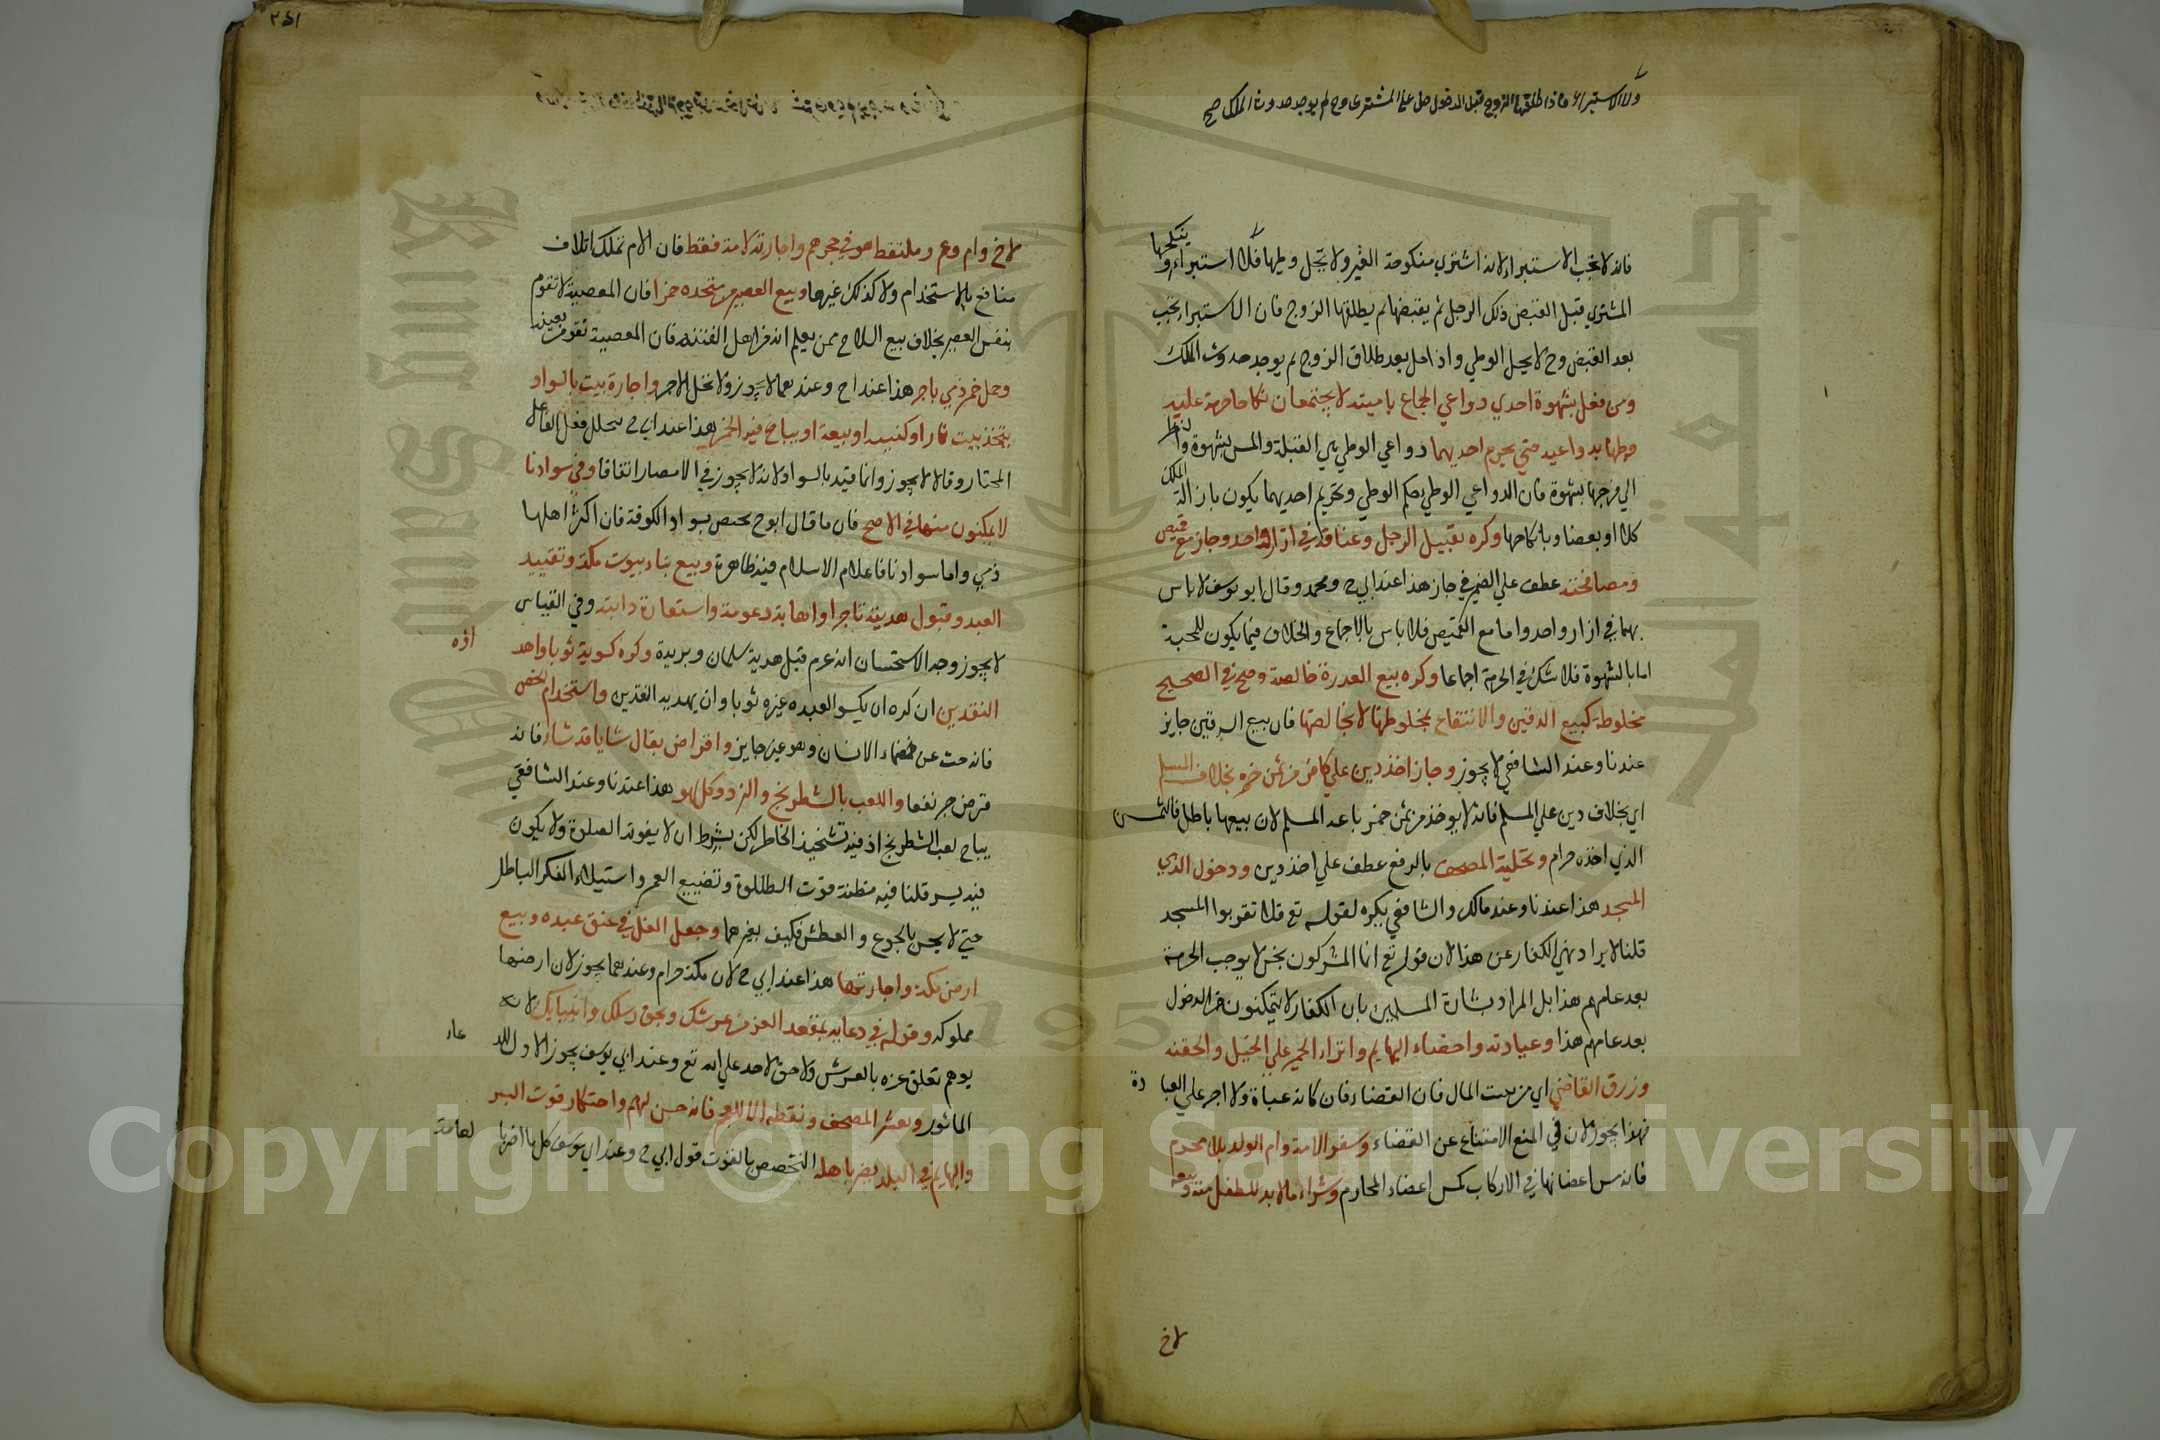 ولا استبراء فاذا طلقها الزوج قبل الدخول حل علي المشتري وح لم يوجد حدوث الملك صح
فانه لا يجب الاستبراء لانه اشتري منكوحة الغير ولا يحل وطيها فلا استبراء او ينكحها
المشتري قبل القبض ذلك الرجل ثم يقبضها ثم يطلقها الزوج فان الاستبراء يجب
بعد القبض وح لا يحل الوطي واذا حل بعد طلاق الزوج لم يوجد حدوث الملك
ومن فعل بشهوة احدي دواعي الجماع بامتيه لا يجتمعان نكاحا حرم عليه
وطيها بدواعيه حتي يحرم احديهما دواعي الوطي هي القبلة والمس بشهوة والنظر
الي فرجها بشهوة فان الدواعي الوطي بحكم الوطي وتحريم احديهما يكون بازالة الملك
كلا او بعضا وبانكاحها وكره تقبيل الرجل وعناقه في ازار واحد وجاز مع قميص
ومصافحته عطف علي الضمير في جاز هذا عند ابي ح ومحمد وقال ابو يوسف لا باس
بهما في ازار واحد واما مع القميص فلا باس بالاجماع والخلاف فيما يكون للمحبة
اما بالشهوة فلا شك في الحرمة اجماعا وكره بيع العذرة خالصة وصح في الصحيح
مخلوطة كبيع السرقين والانتفاع بمخلوطها لا بخالصها فان بيع السرقين جايز
عندنا وعند الشافعي لا يجوز وجاز اخذ دين علي كافر من ثمن خمره بخلاف المسلم
اي بخلاف دين علي المسلم فانه لا يوخذ من ثمن خمر باعه المسلم لان بيعها باطل فالثمن
الذي اخذه حرام وتحلية المصحف بالرفع عطف علي اخذ دين ودخول الذمي
المسجد هذا عندنا وعند مالك والشافعي يكره لقوله تع فلا تقربوا المسجد
قلنا لا يراد نهي الكفار عن هذا لان قوله تع انما المشركون نجس لا يوجب الحرمة
بعد عامهم هذا بل المراد بشارة المسلمين بان الكفار لا يتمكنون من الدخول
بعد عامهم هذا وعيادته واخصاء البهايم وانزاء الحمير علي الخيل والحقنة
ورزق القاضي اي من بيت المال فان القضاء فان كانه عبادة ولا اجر علي العبادة
فهذا يجوز لان في المنع الامتناع عن القضاء وسفر الامة وام الولد بلا محرم
فانه مس اعضائها في الاركاب كمس اعضاء المحارم وشراء ما لا بد للطفل منه وبيعه
لاخ
٢٥١
لاخ وام وعم وملتقط هو في حجرهم واجارته لامه فقط فان الام تملك اتلاف
منافع بالاستخدام ولا كذلك غيرها وبيع العصير من متخذه خمرا فان المعصية لا تقوم
بنفس العصير بخلاف بيع السلاح ممن يعلم انه من اهل الفتنة فان المعصية تقوم بعينه
وحمل خمر ذمي باجر هذا عند ا ح وعندهما لا يجوز ولا تحل الاجر واجارة بيت بالسواد
يتخذ بيت نار او كنيسه او بيعة او يباع فيه الخمر هذا عند ابي ح تخلل فعل الفاعل
المختار وقالا لا يجوز وانما قيد بالسواد لانه لا يجوز في الامصار اتفاقا وفي سوادنا
لا يمكنون منها في الاصح فان ما قال ابو ح يختص بسواد الكوفة فان اكثر اهلها
ذمي واما سوادنا فاعلام الاسلام فيه ظاهرة وبيع بناء بيوت مكة وتقييد
العبد وقبول هديته تاجرا واجابة دعوته واستعارة دابته وفي القياس
لا يجوز وجه الاستحسان انه عم قبل هدية سلمان وبريدة وكره كسوته ثوبا واهداؤه
النقدين ان كره ان يكسو العبد غيره ثوبا وان يهديه النقدين واستخدام الخصي
فانه حث عن خصاء الانسان وهو غير جايز واقراض بقال شيا ياخذ ما شاء فانه
قرض جر نفعا واللعب بالشطرنج والنرد وكل لهو هذا عندنا وعند الشافعي
يباح لعب الشطرنج اذ فيه تشحيذ الخاطر لكن بشرط ان لا يفوته الصلوة ولا يكون
فيه ميسر قلنا فيه مظنة فوت الصلوة وتضييع العمر واستيلاء الفكر الباطل
حتي لا يحس بالجوع والعطش فكيف بغيرهما وجعل الغل في عنق عبده وبيع
ارض مكة واجارتها هذا عند ابي ح لان مكة حرام وعندهما يجوز لان ارضها
مملوكة وقوله في دعايه بمقعد العز من عرشك وبحق رسلك وانبيايك لانه
يوهم تعلق عزه بالعرش ولا حق لاحد علي الله تع وعند ابي يوسف يجوز الاول للدعاء
الماثور وتعشير المصحف ونقطه الا للعجم فانه حسن لهم واحتكار قوت البشر
والبهايم في البلد يضر باهله التخصص بالقوت قول ابي ح وعند ابي يوسف كل ما اضر بالعامة